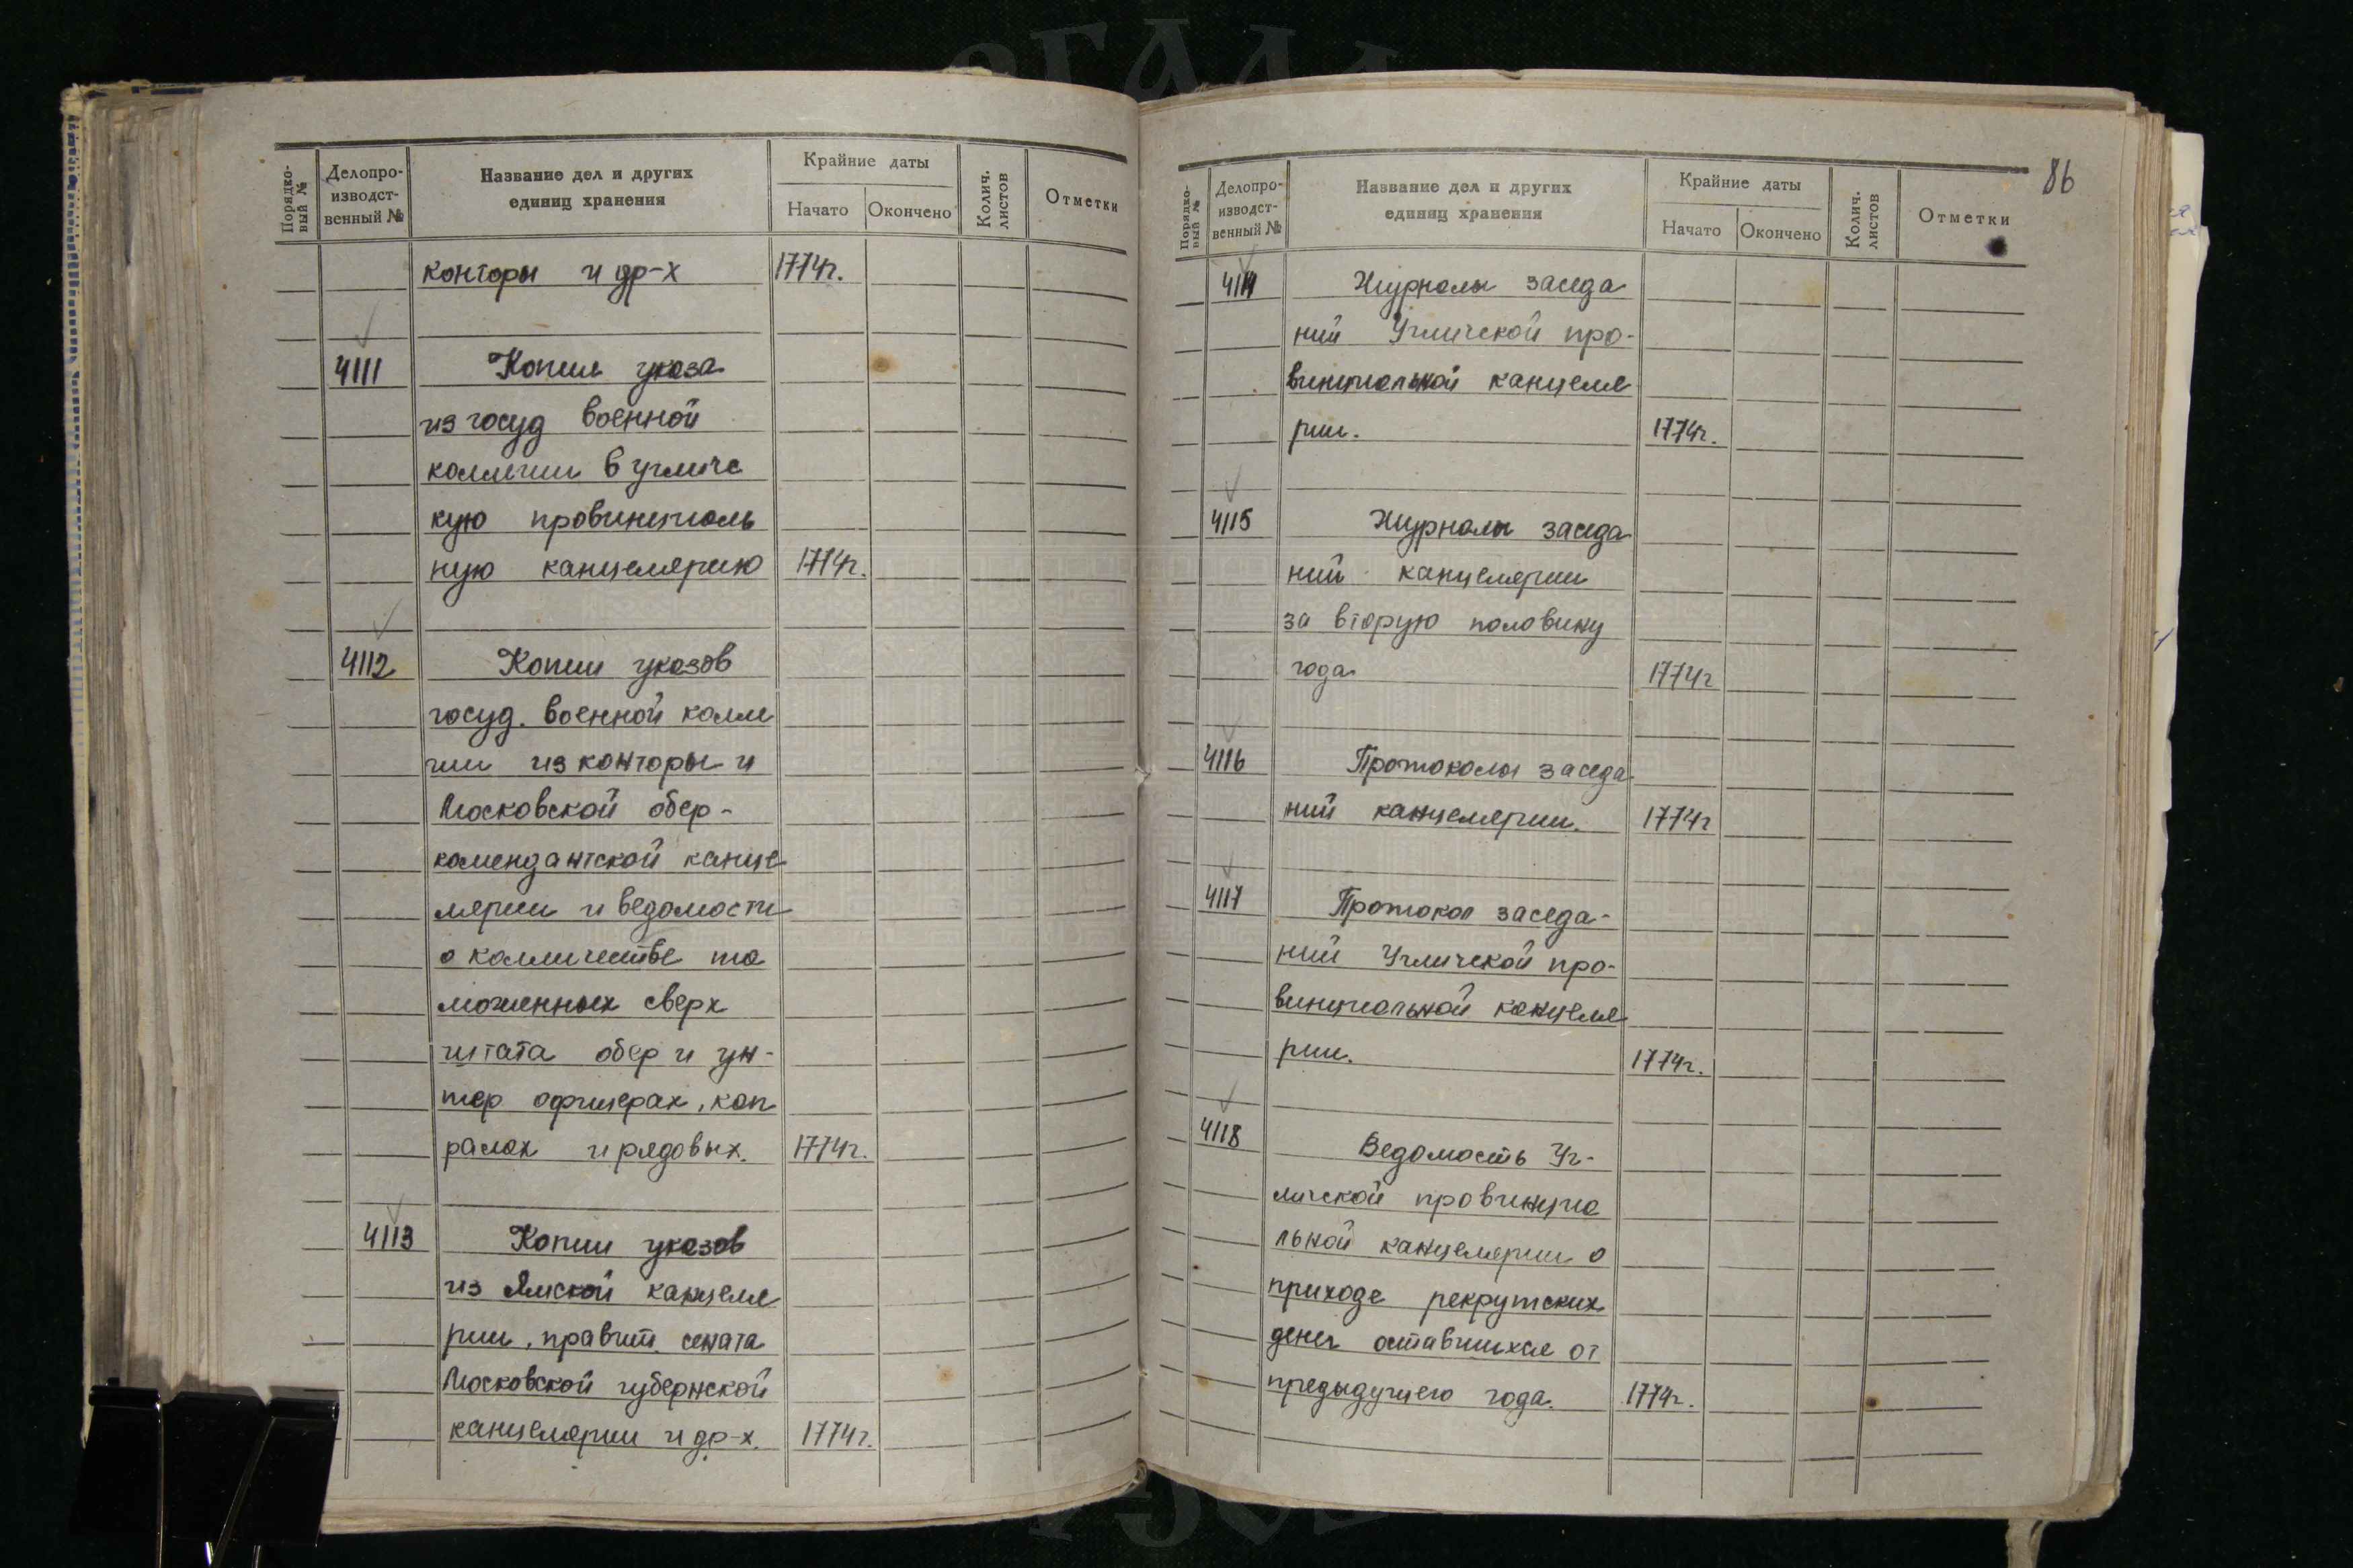 Порядко-
вый №
Делопро-
изводст-
венный №
Название дел и других
единиц хранения
Крайние даты
Начато
Окончено
Колич.
листов
Отметки
конторы и др-х 1774г.
4111 Копия указа
из госуд военной
коллегии в угличс
кую провинциаль
ную канцелярию 1774г.
4112 Копии указов
госуд. военной колле
гии из конторы и
Московской обер-
комендантской канце
лярии и ведомости
о колличестве по
ложенных сверх
штата обер и ун-
тер офицерах, кап
ралах и рядовых. 1774г.
4113 Копии указов
из Ямской канцеля
рии, правит. сената
Московской губернской
канцелярии и др-х. 1774г.
86
Порядко-
вый №
Делопро-
изводст-
венный №
Название дел и других
единиц хранения
Крайние даты
Начато
Окончено
Колич.
листов
Отметки
4114 Журналы заседа
ний Угличской про-
винциальной канцеля
рии. 1774г.
4115 Журналы заседа
ний канцелярии
за вторую половину
года 1774г
4116 Протоколы заседа
ний канцелярии. 1774г
4117 Протокол заседа-
ний Угличской про-
винциальной канцеля
рии. 1774г.
4118 Ведомость Уг-
личской провинциа
льной канцелярии о
приходе рекрутских
денег оставшихся от
предыдущего года. 1774г.